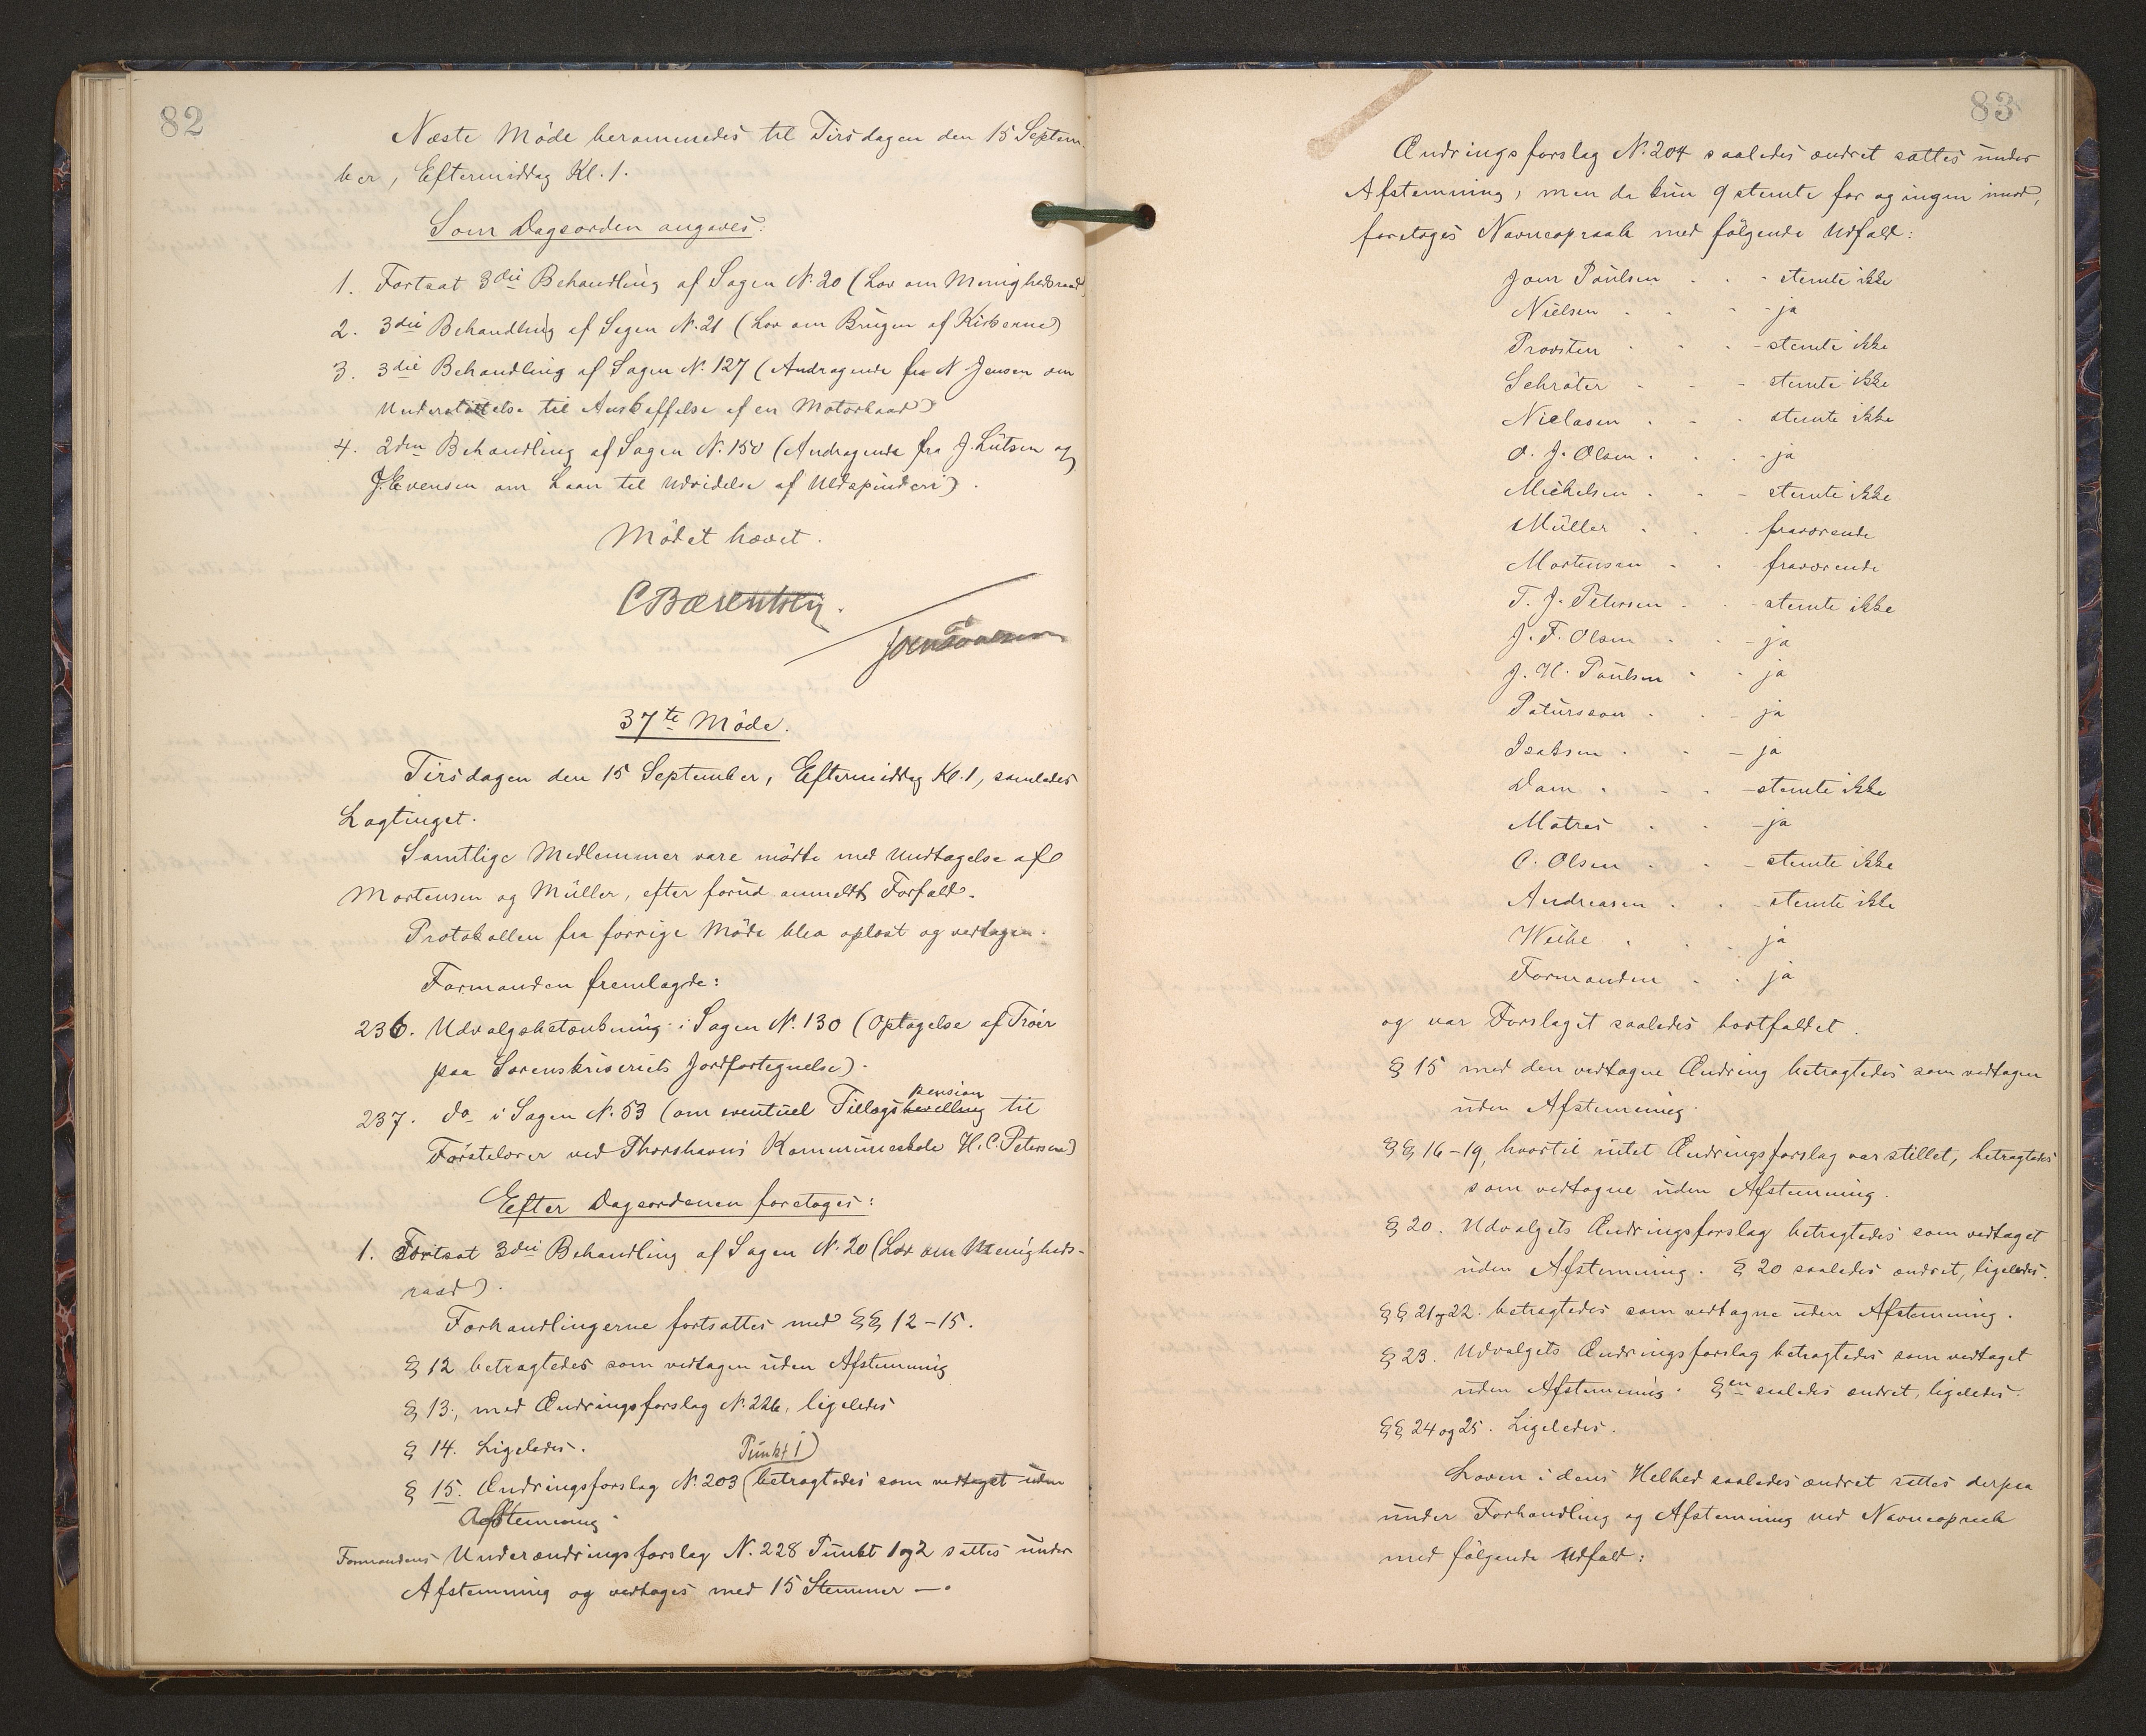 82
Næste Möde berammedes til Tirsdagen den 15 Septem-
ber, Eftermiddag Kl. 1.
Som Dagsorden angaves:
1. Fortsat 3die Behandling af Sagen N. 20 (Lov om Menighedsraad)
2. 3die Behandling af Sagen N. 21 (Lov om Brugen af Kirkerne)
3. 3die Behandling af Sagen N. 127 (Andragende fra N. Jensen om
Understöttelse til Anskaffelse af en Motorbaad)
4. 2den Behandling af Sagen N. 150 (Andragende fra J. Lützen og
J. Evensen om Laan til Udvidelse af Uldspinderi).
Mödet hævet.
C Bærentsen.
Joen Poulsen
37te Möde.
Tirsdagen den 15 September, Eftermiddag Kl. 1, samledes
Lagtinget.
Samtlige Medlemmer vare mödte med Undtagelse af
Mortensen og Müller, efter forud anmeldt Forfald.
Protokollen fra forrige Möde blev oplæst og vedtagen.
Formanden fremlagde:
236. Udvalgsbetænkning i Sagen N. 130 (Optagelse af Tröer
paa Sorenskriveriets Jordfortegnelse).
pension
237. do i Sagen N. 53 (om eventuel Tillægsbestilling til
Förstelærer ved Thorshavns Kommuneskole H. C. Petersen)
Efter Dagsordenen foretoges:
1. Fortsat 3die Behandling af Sagen N. 20 (Lov om Menigheds-
raad).
Forhandlingerne fortsattes med §§ 12–15.
§ 12 betragtedes som vedtagen uden Afstemning
§ 13, med Ændringsforslag N. 226, ligeledes
§ 14. Ligeledes.
Punkt 1)
§ 15. Ændringsforslag N. 203 (betragtedes som vedtaget uden
Afstemning.
Formandens Underændringsforslag N. 228 Punkt 1 og 2 sattes under
Afstemning og vedtoges med 15 Stemmer —.
83
Ændringsforslag N. 204 saaledes ændret sattes under
Afstemning, men da kun 9 stemte for og ingen imod,
foretoges Navneopraab med fölgende Udfald:
Joen Poulsen . . - stemte ikke
Nielsen . . - ja
Provsten . . - stemte ikke
Schröter - - - stemte ikke
Niclasen . - . stemte ikke
O. J. Olsen . . - ja
Michelsen . . - stemte ikke
Müller . . . fraværende
Mortensen . . fraværende
T. J. Petersen . . - stemte ikke
J. F. Olsen . . - ja
J. H. Poulsen . . ja
Patursson . . - ja
Isaksen . . - ja
Dam . . . - stemte ikke
Matras . . - ja
C. Olsen . . - stemte ikke
Andreasen . . - stemte ikke
Weihe . . . ja
Formanden . . ja
og var Forslaget saaledes bortfaldet.
§ 15 med den vedtagne Ændring betragtedes som vedtagen
uden Afstemning.
§§ 16–19, hvortil intet Ændringsforslag var stillet, betragtedes
som vedtagne uden Afstemning.
§ 20. Udvalgets Ændringsforslag betragtedes som vedtaget
uden Afstemning. § 20 saaledes ændret, ligeledes.
§§ 21 og 22. betragtedes som vedtagne uden Afstemning.
§ 23. Udvalgets Ændringsforslag betragtedes som vedtaget
uden Afstemning. §en saaledes ændret, ligeledes.
§§ 24 og 25. Ligeledes.
Loven i dens Helhed saaledes ændret sattes derpaa
under Forhandling og Afstemning ved Navneopraab
med fölgende Udfald: